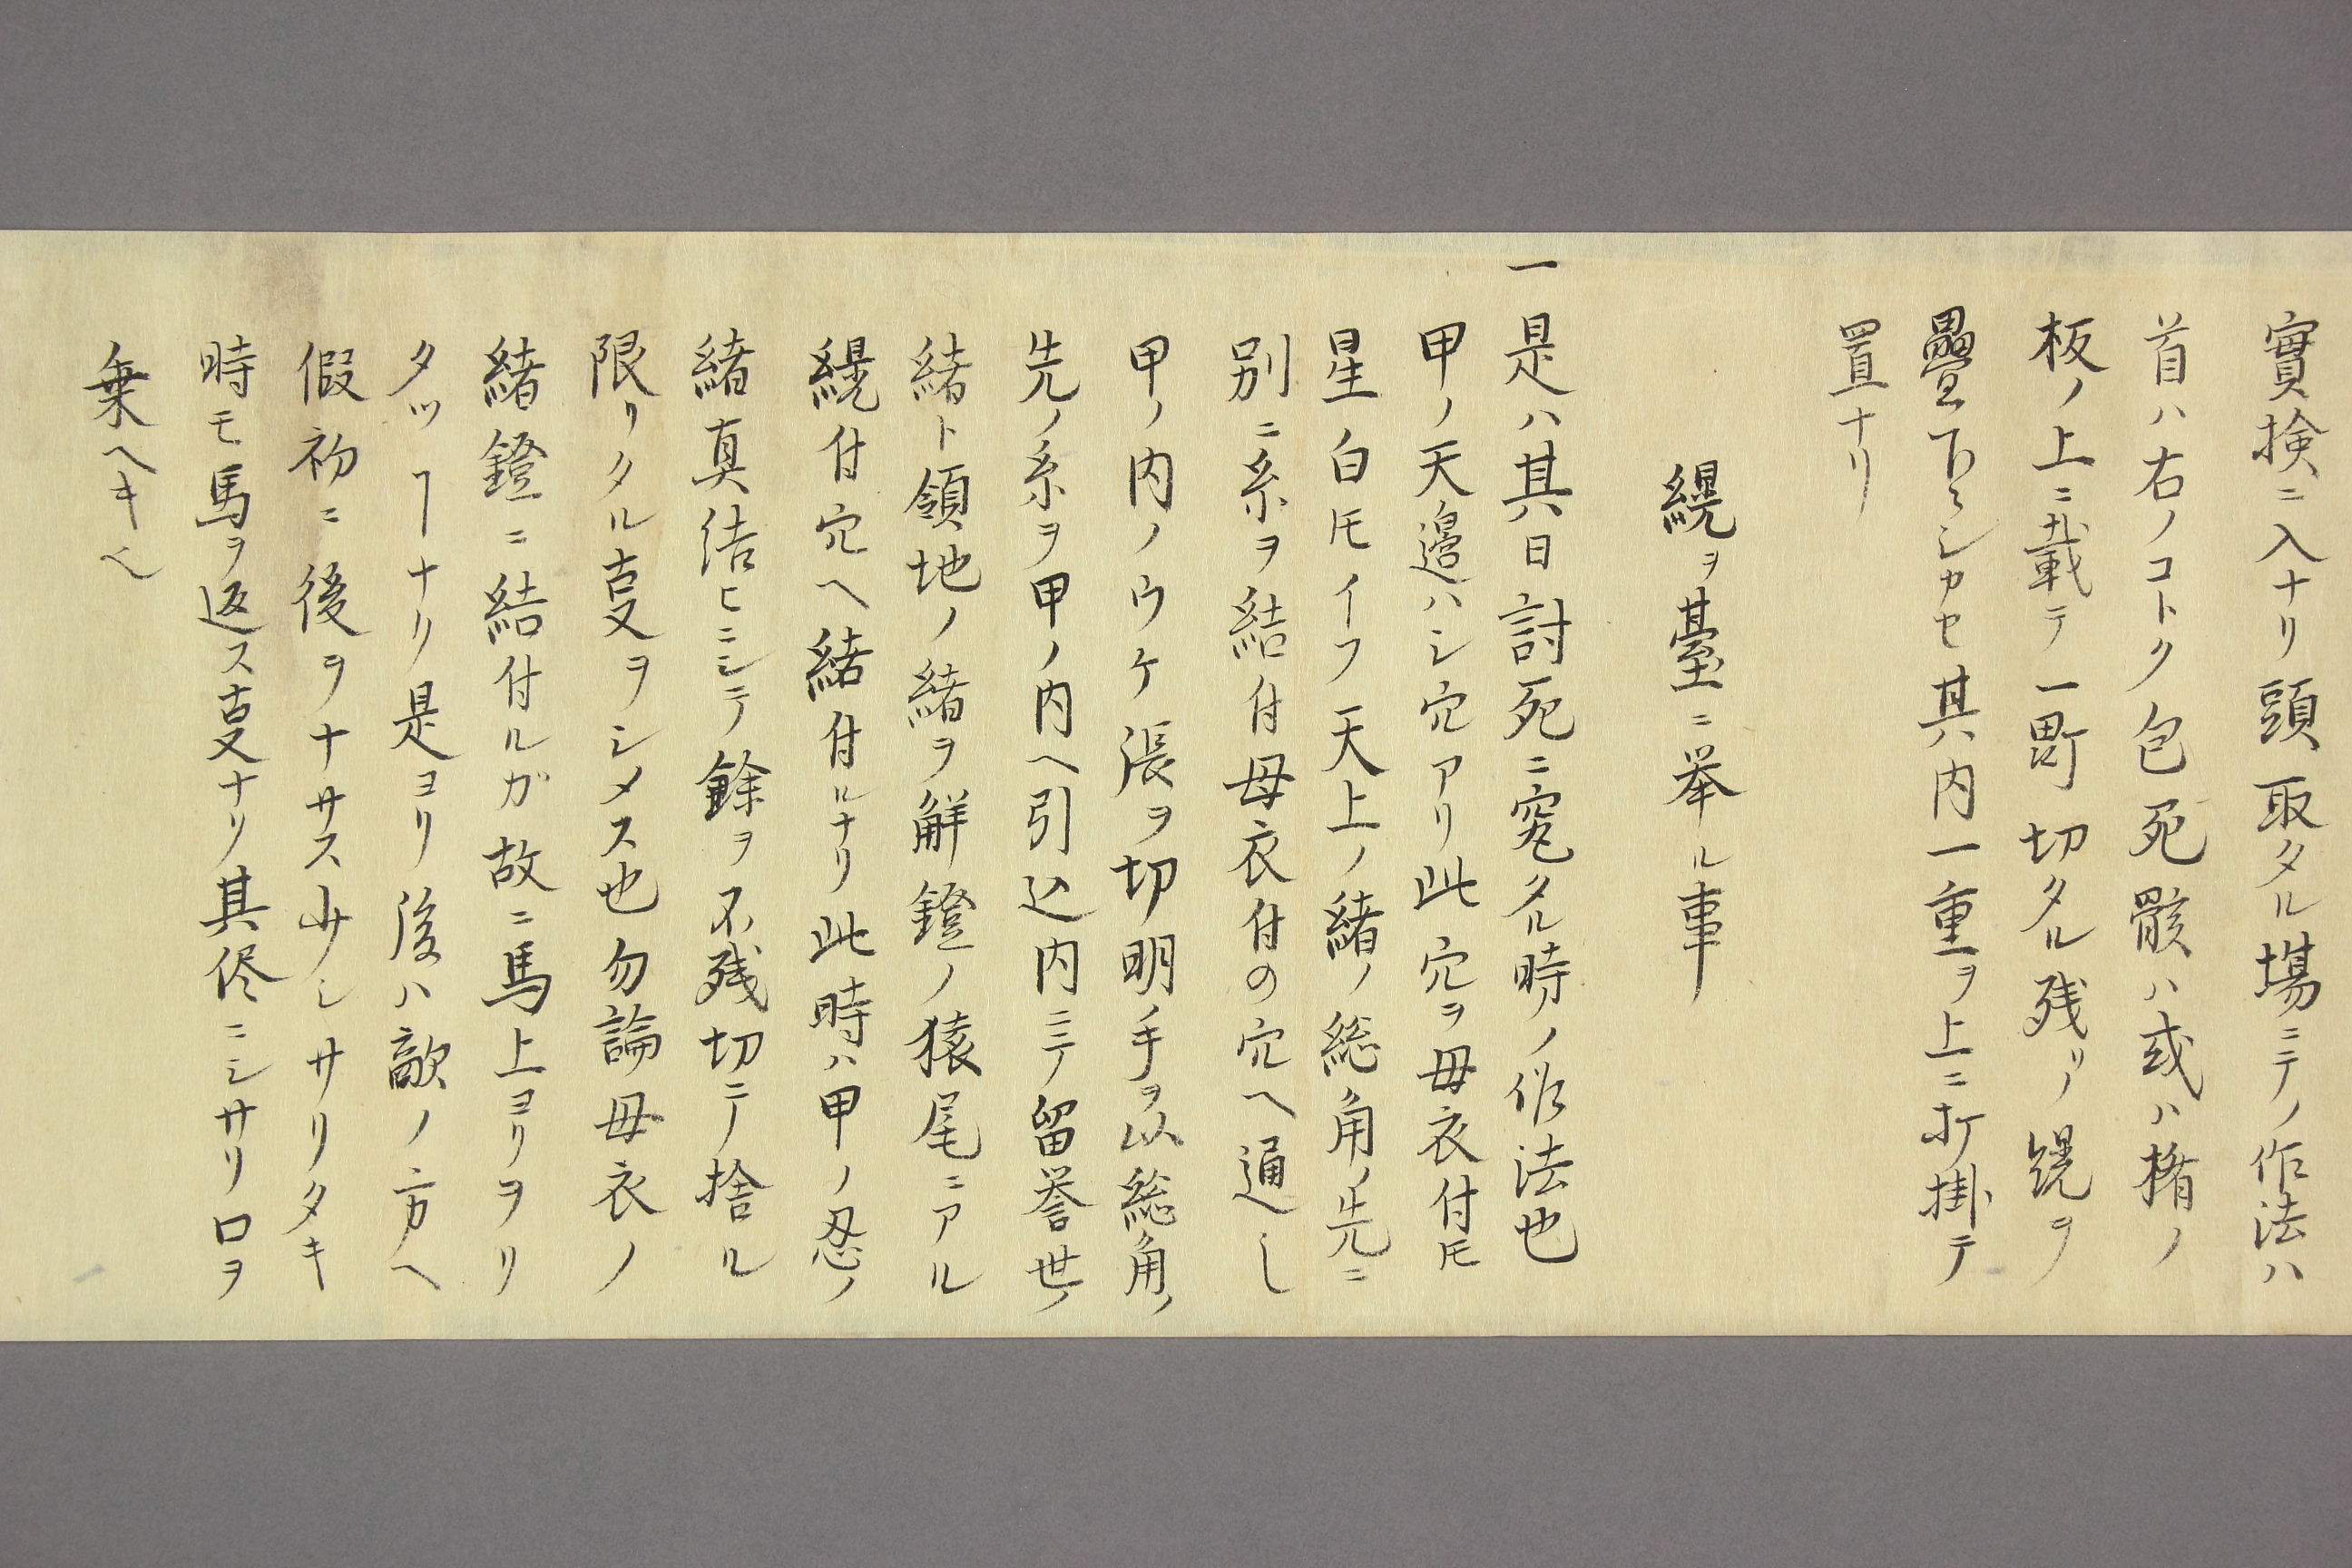 實検ニ入ナリ頭取タル場ニテノ作法ハ
首ハ右ノコトク包死骸ハ或ハ楯ノ
板ノ上ニ載テ一町切タル残リノ幌ヲ
疊下ニシカセ其内一重ヲ上ニ打掛テ
置ナリ
縨ヲ臺ニ举ル事
一是ハ其日討死ニ究タル時ノ作法也
甲ノ天邉ハシ穴アリ此穴ヲ母衣付𪜈
星白𪜈イフ天上ノ緒ノ総角ノ先ニ
別ニ糸ヲ結付母衣付の穴ヘ通し
甲ノ内ノウケ張ヲ切明手ヲ以総角ノ
先ノ糸ヲ甲ノ内ヘ引込内ニテ留誉世ノ
緒ト領地ノ緒ヲ觧鐙ノ猿尾ニアル
縨付穴ヘ緒付ルナリ此時ハ甲ノ忍ノ
緒真結ヒニシテ餘ヲ不残切ニテ捨ル
限リタル叓ヲシメス也勿論母衣ノ
緒鐙ニ結付ルガ故ニ馬上ヨリヲリ
タツヿナリ是ヨリ後ハ敵ノ方ヘ
假初ニ後ヲナサス少シサリタキ
時モ馬ヲ返ス叓ナリ其侭ニシサリ口ヲ
乗ヘキ也